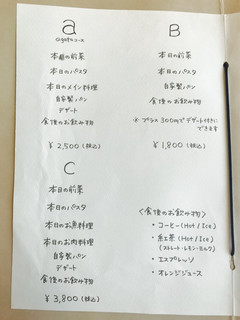 a
agataコース
本日の前菜
本日のパスタ
本日のメイン料理
自家製パン
デザート
食後のお飲み物
¥2,500(税込)
B
本日の前菜
本日のパスタ
自家製パン
食後のお飲み物
※プラス300円でデザート付きに
できます
¥1,800(税込)
C
本日の前菜
本日のパスタ
本日のお魚料理
本日のお肉料理
自家製パン
デザート
食後のお飲み物
¥3,800(税込)
<食後のお飲み物>
・コーヒー(Hot/Ice)
・紅茶(Hot/Ice)
(ストレート・レモン・ミルク)
・エスプレッソ
・オレンジジュース